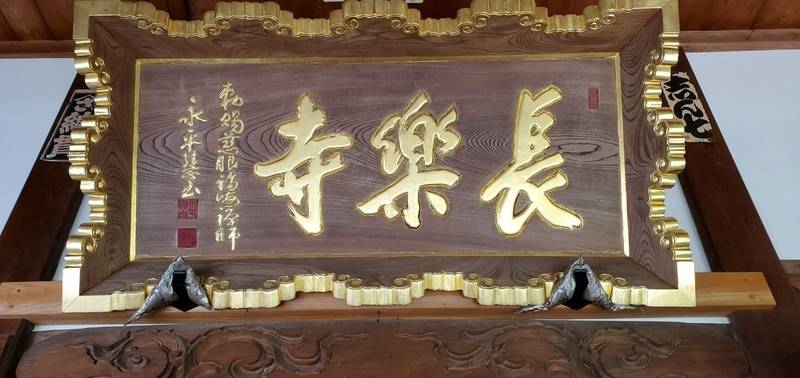 長樂寺
勅賜慈眼福海禅師
永平慧玉